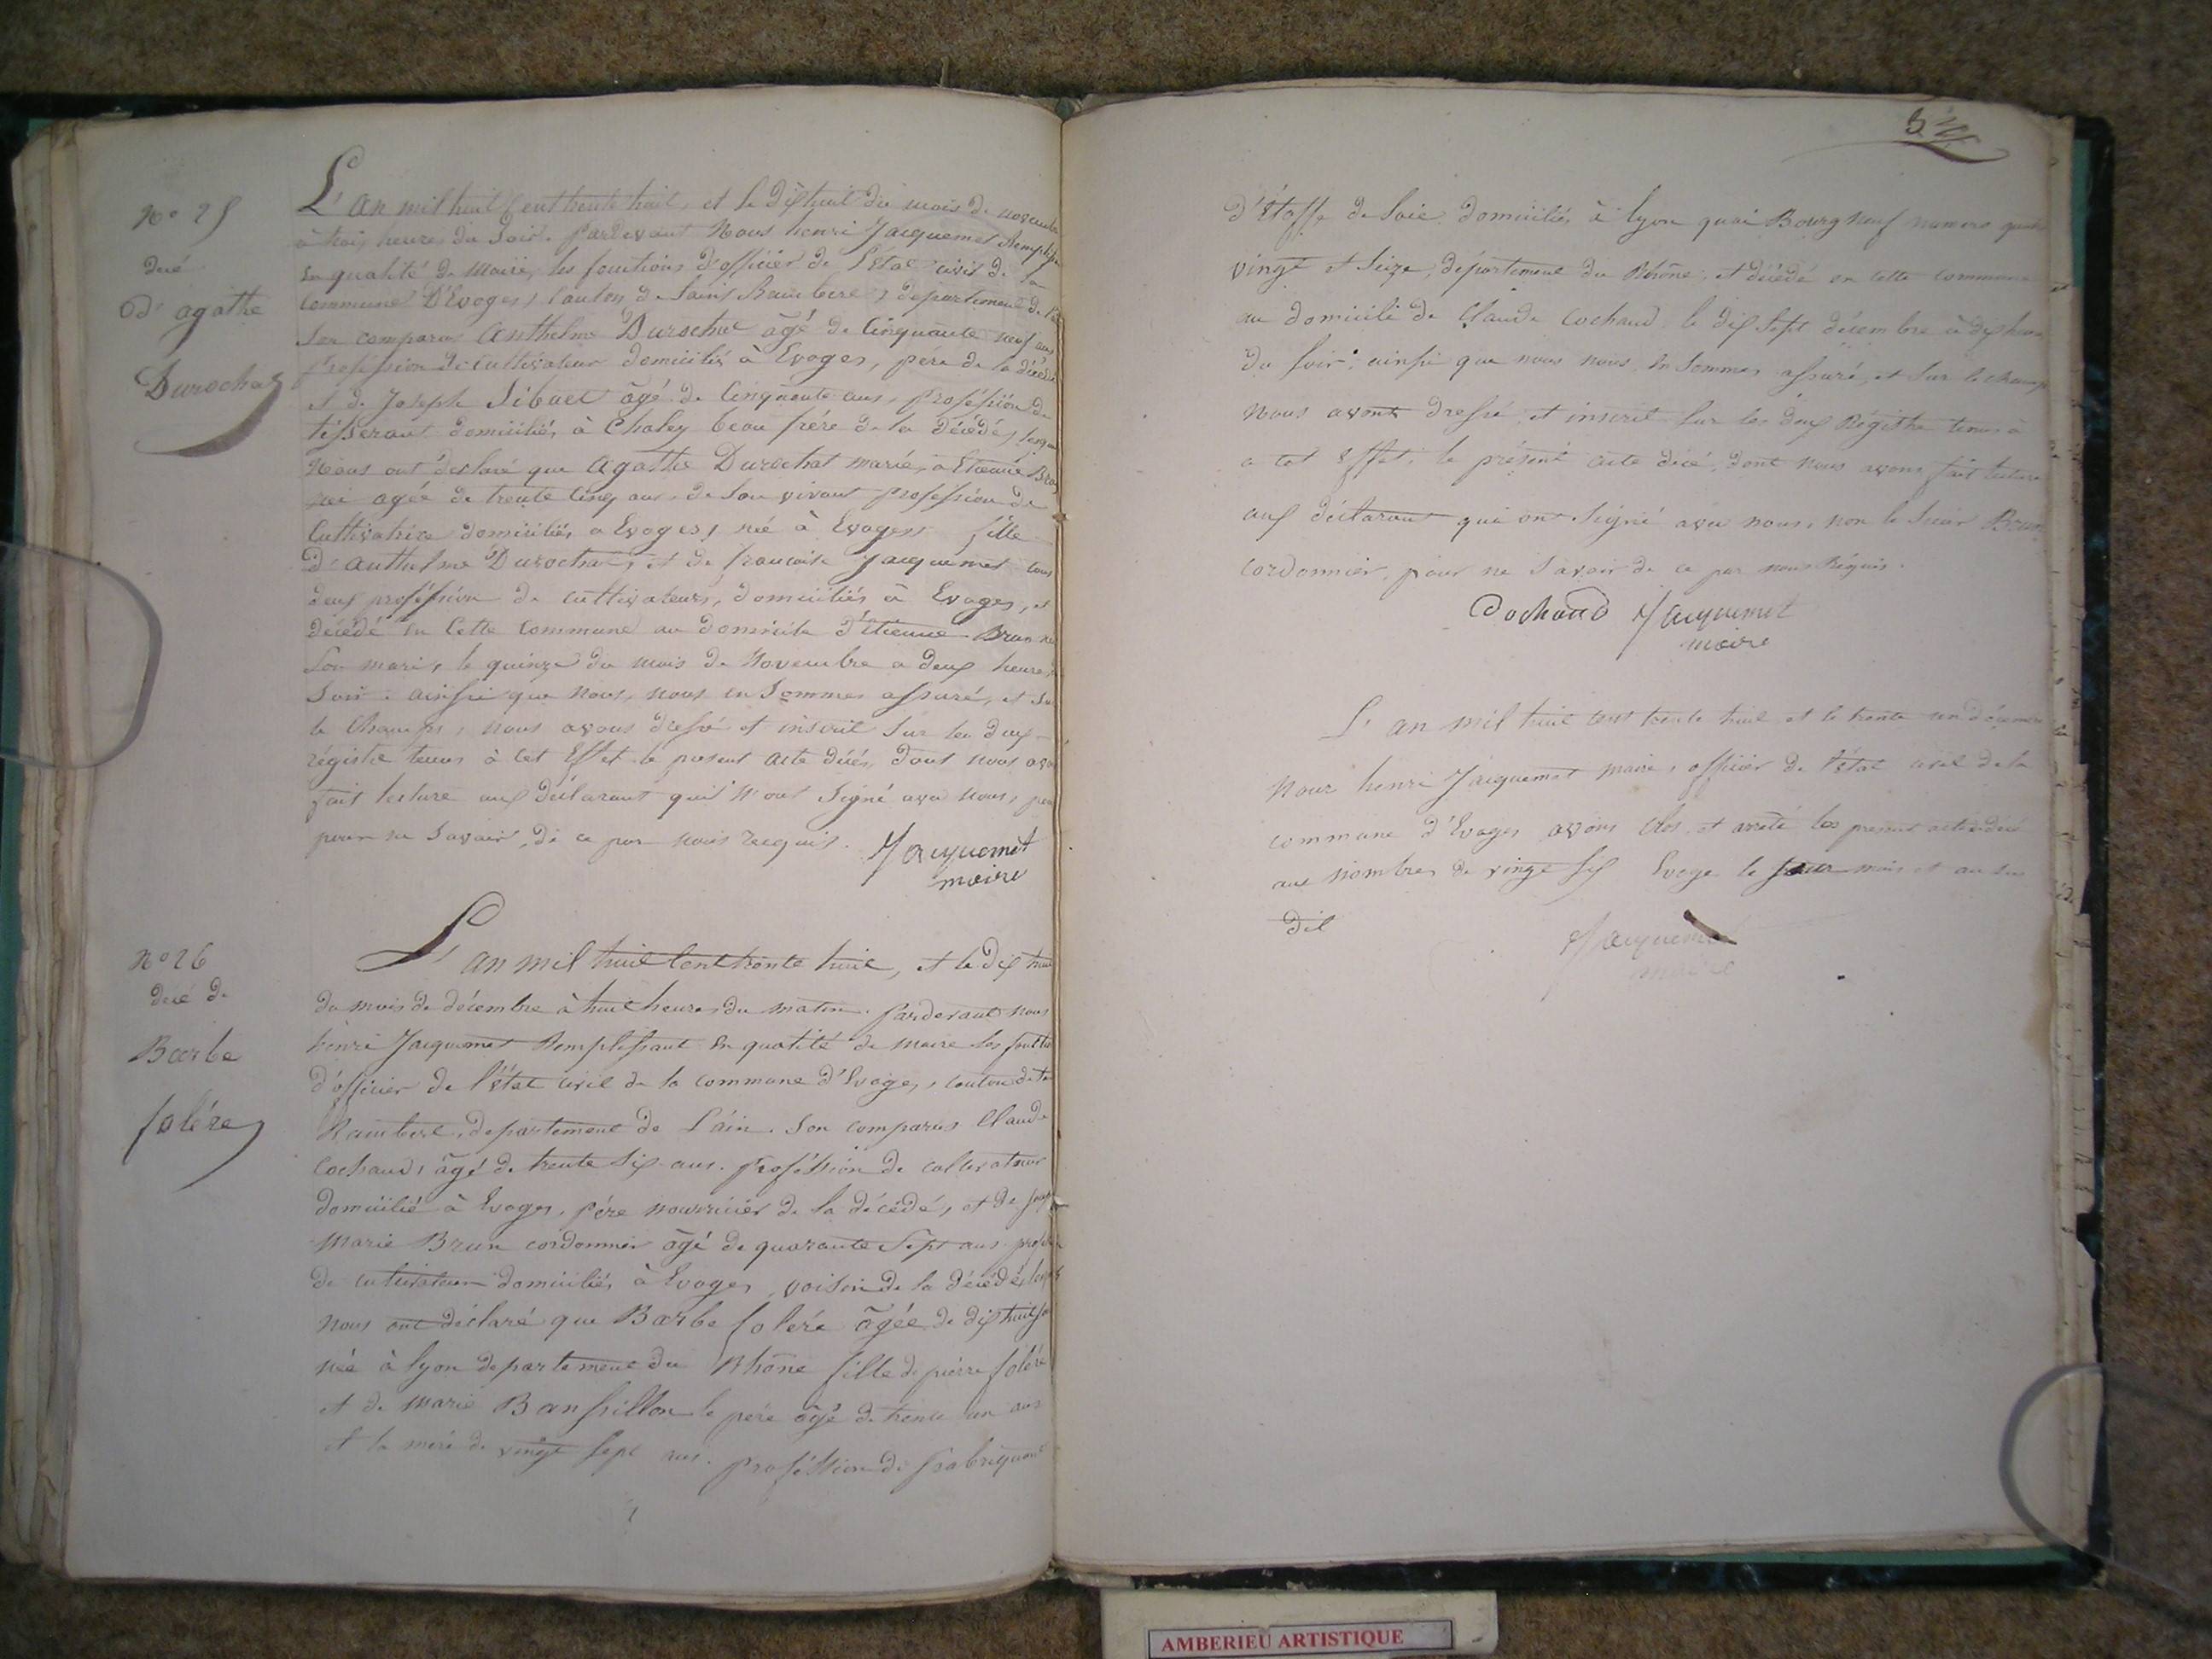 N° 25
décé
d'agathe
Durochat
L'an mil huit cent trente huit, et le dixhuit du mois de novembre
à trois heures du Soir. Pardevant Nous henri Jacquemet Remplissant
en qualité de Maire, les fonctions d'officier de l'état civil de la
commune D'Evoges, Canton de Saint Rambert, departement de l'ain
Son comparus Anthelme Durochat âgé de Cinquante neuf ans
Profession de Cultivateur domicilié à Evoges, père de la décédé
et de Joseph Sibuet âgé de Cinquante ans, Proféssion de
tisserant domiciliés à Chaley beau frére de la décédé, lesquels
Nous ont déclaré que Agathe Durochat marié, à Etienne Brun
agée de trente Cinq ans, de Son vivant profession de
Cultivatrice domiciliés a Evoges, né à Evoges fille
D'Anthelme Durochat, et de francoise Jacquemet tous
deux proféssion de cultivateurs, domiciliés à Evoges, et
décédé en Cette Commune au domicile d'Etienne Brun
Son mari, le quinze du mois de Novembre a deux heures
Soir. ainsi que nous, nous en Sommes assuré, et Sur
le Champs, nous avons dressé et inscrit Sur les deux
régistre tenus à Cet Effet le present acte décés, dont nous avons
fait lecture aux déclarant qui N'ont Signé avec nous,
pour ne Savoir, de ce par nous requis. Jacquemet
maire
N° 26
décé de
Barbe
foléré
L'an mil huit Cent trente huit, et le dix huit
du mois de décembre à huit heures du matin. Pardevant nous
henri Jacquemet Remplissant en qualité de Maire les
d'officier de l'état Civil de la commune d'Evoges, Canton de
Rambert, departement de L'ain. Son comparus Claude
Cochaud, âgé de trente Six ans. Proféssion de
domicilié à Evoges, Pére nourricier de la décédé, et de
Marie Brun cordonnier âgé de quarante Sept ans
de cultivateur domiciliés à Evoges, voisin de la décédé,
nous ont déclaré que Barbe foléré âgée de dix huit
née à lyon departement du Rhône fille de pierre foléré
et de Marie Banssillon le pére âgé de trente un ans
et la mére de vingt Sept ans. proféssion de frabriquant
d'étoffe de Soie, domiciliés à lyon quai Bourgneuf numero
vingt et Seize, département du Rhône, et décédé en cette commune
au domicile de Claude Cochaud le dix Sept décembre à dix heures
du Soir; ainsi que nous nous en Sommes assuré, et Sur le champ
nous avons dressé et inscrit Sur les deux Régistre tenus à
a cet effet, le présent acte décé, dont nous avons fait lecture
aux déclarant qui ont Signé avec nous, non le Sieur Brun
Cordonnier, pour ne Savoir de ce par nous Réquis.
Cochaud Jacquemet
maire
L'an mil huit cent trente huit et le trente un décembre
Nous henri Jacquemet Maire, officier de l'état civil de la
commune d'Evoges avons Clos et arrété les present acte décé
aux nombres de vingt Six Evoge le jour mois et an Sus
dit
Jacquemet
maire
AMBERIEU ARTISTIQUE